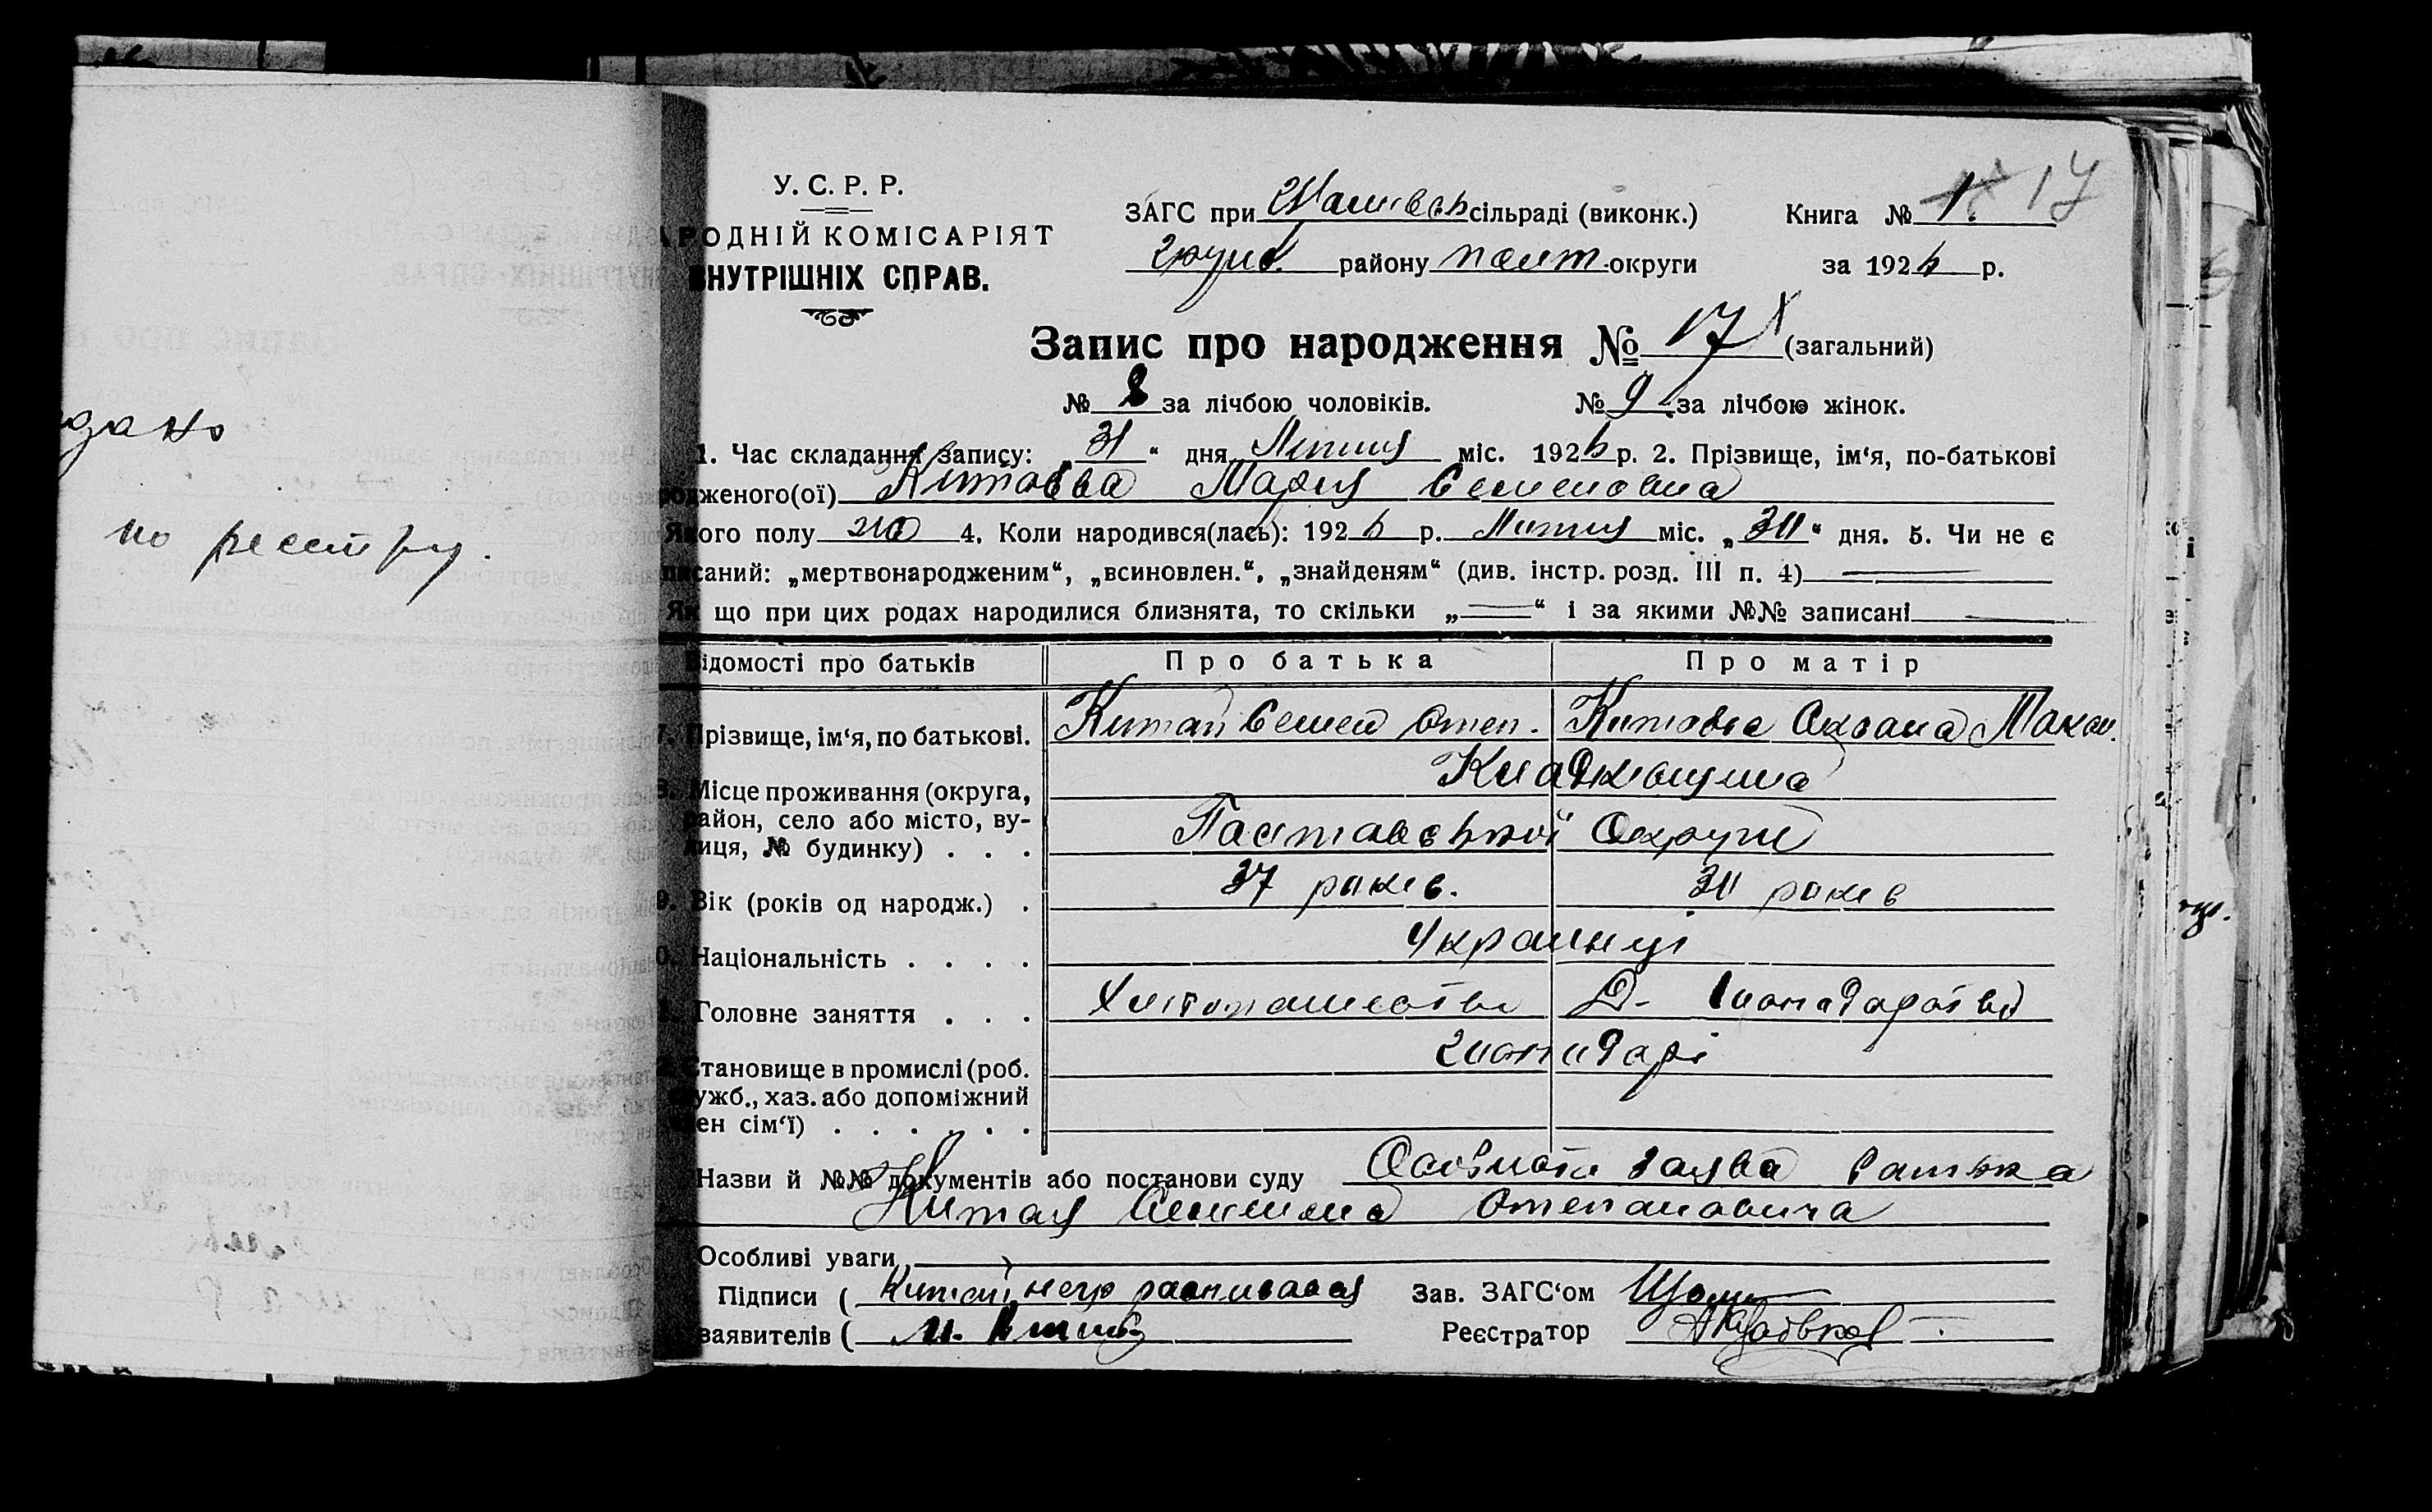 дано
по реестру.
У. С. Р. Р.
РОДНІЙ КОМІСАРІЯТ
ВНУТРІШНІХ СПРАВ.
ЗАГС при сільраді (виконк.)
району полт. округи
Книга № 1. 17
за 1926 р.
Запис про народження № 17 (загальний)
№ 8 за лічбою чоловіків. № 9 за лічбою жінок.
1. Час складання запису: „31“ дня Липня міс. 1926 р. 2. Прізвище, ім‘я, по-батькові
родженого(ої) Китаєва Мария Семеновна
Якого полу жін 4. Коли народився(лась): 1926 р. Липня міс. „30“ дня. 5. Чи не є
писаний: „мертвонародженим“, „всиновлен.“, „знайденям“ (див. інстр. розд. III п. 4)
Як що при цих родах народилися близнята, то скільки „—“ і за якими №№ записані
Відомості про батьків Про батька Про матір
7. Прізвище, ім‘я, по батькові. Китай Семен Степ. Китаєва Оксана Макси.
8. Місце проживання (округа,
район, село або місто, ву-
лиця, № будинку) . . . Полтавської Округи
9. Вік (років од народж.) . 37 рокив. 30 рокив
0. Національність . . . . Украинці
Головне заняття . . . Хлиборобство Д- господарство
Становище в промислі (роб. господарі
служб., хаз. або допоміжний
ен сім‘ї) . . . . . .
Назви й №№ документів або постанови суду Особиста заява батька
Китая Семена Степановича
Особливі уваги
Підписи ( Китай негр росписався Зав. ЗАГС‘ом
заявителів ( Реєстратор